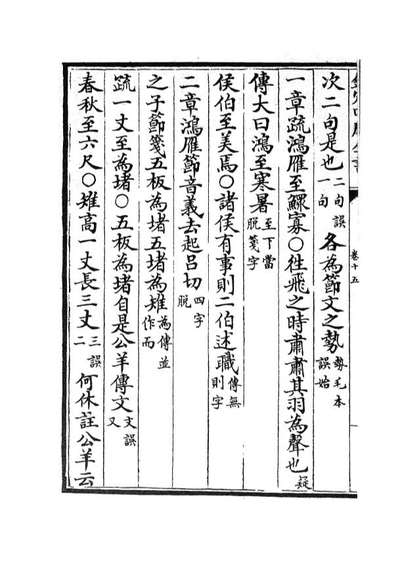 卷十五
次二句是也二句誤一句各為節文之勢勢毛本誤始
一章疏鴻雁至鰥寡○徃飛之時肅肅其羽為聲也疑
傳大曰鴻至寒暑至下當脱箋字
侯伯至美馬○諸侯有事則二伯述職傳無則字
二章鴻雁節音義去起吕切四字脱
之子節箋五板為堵五堵為雉為傳並作而
疏一丈至為堵○五板為堵自是公羊傳文文誤又
春秋至六尺○雉高一丈長三丈三誤二何休註公羊云